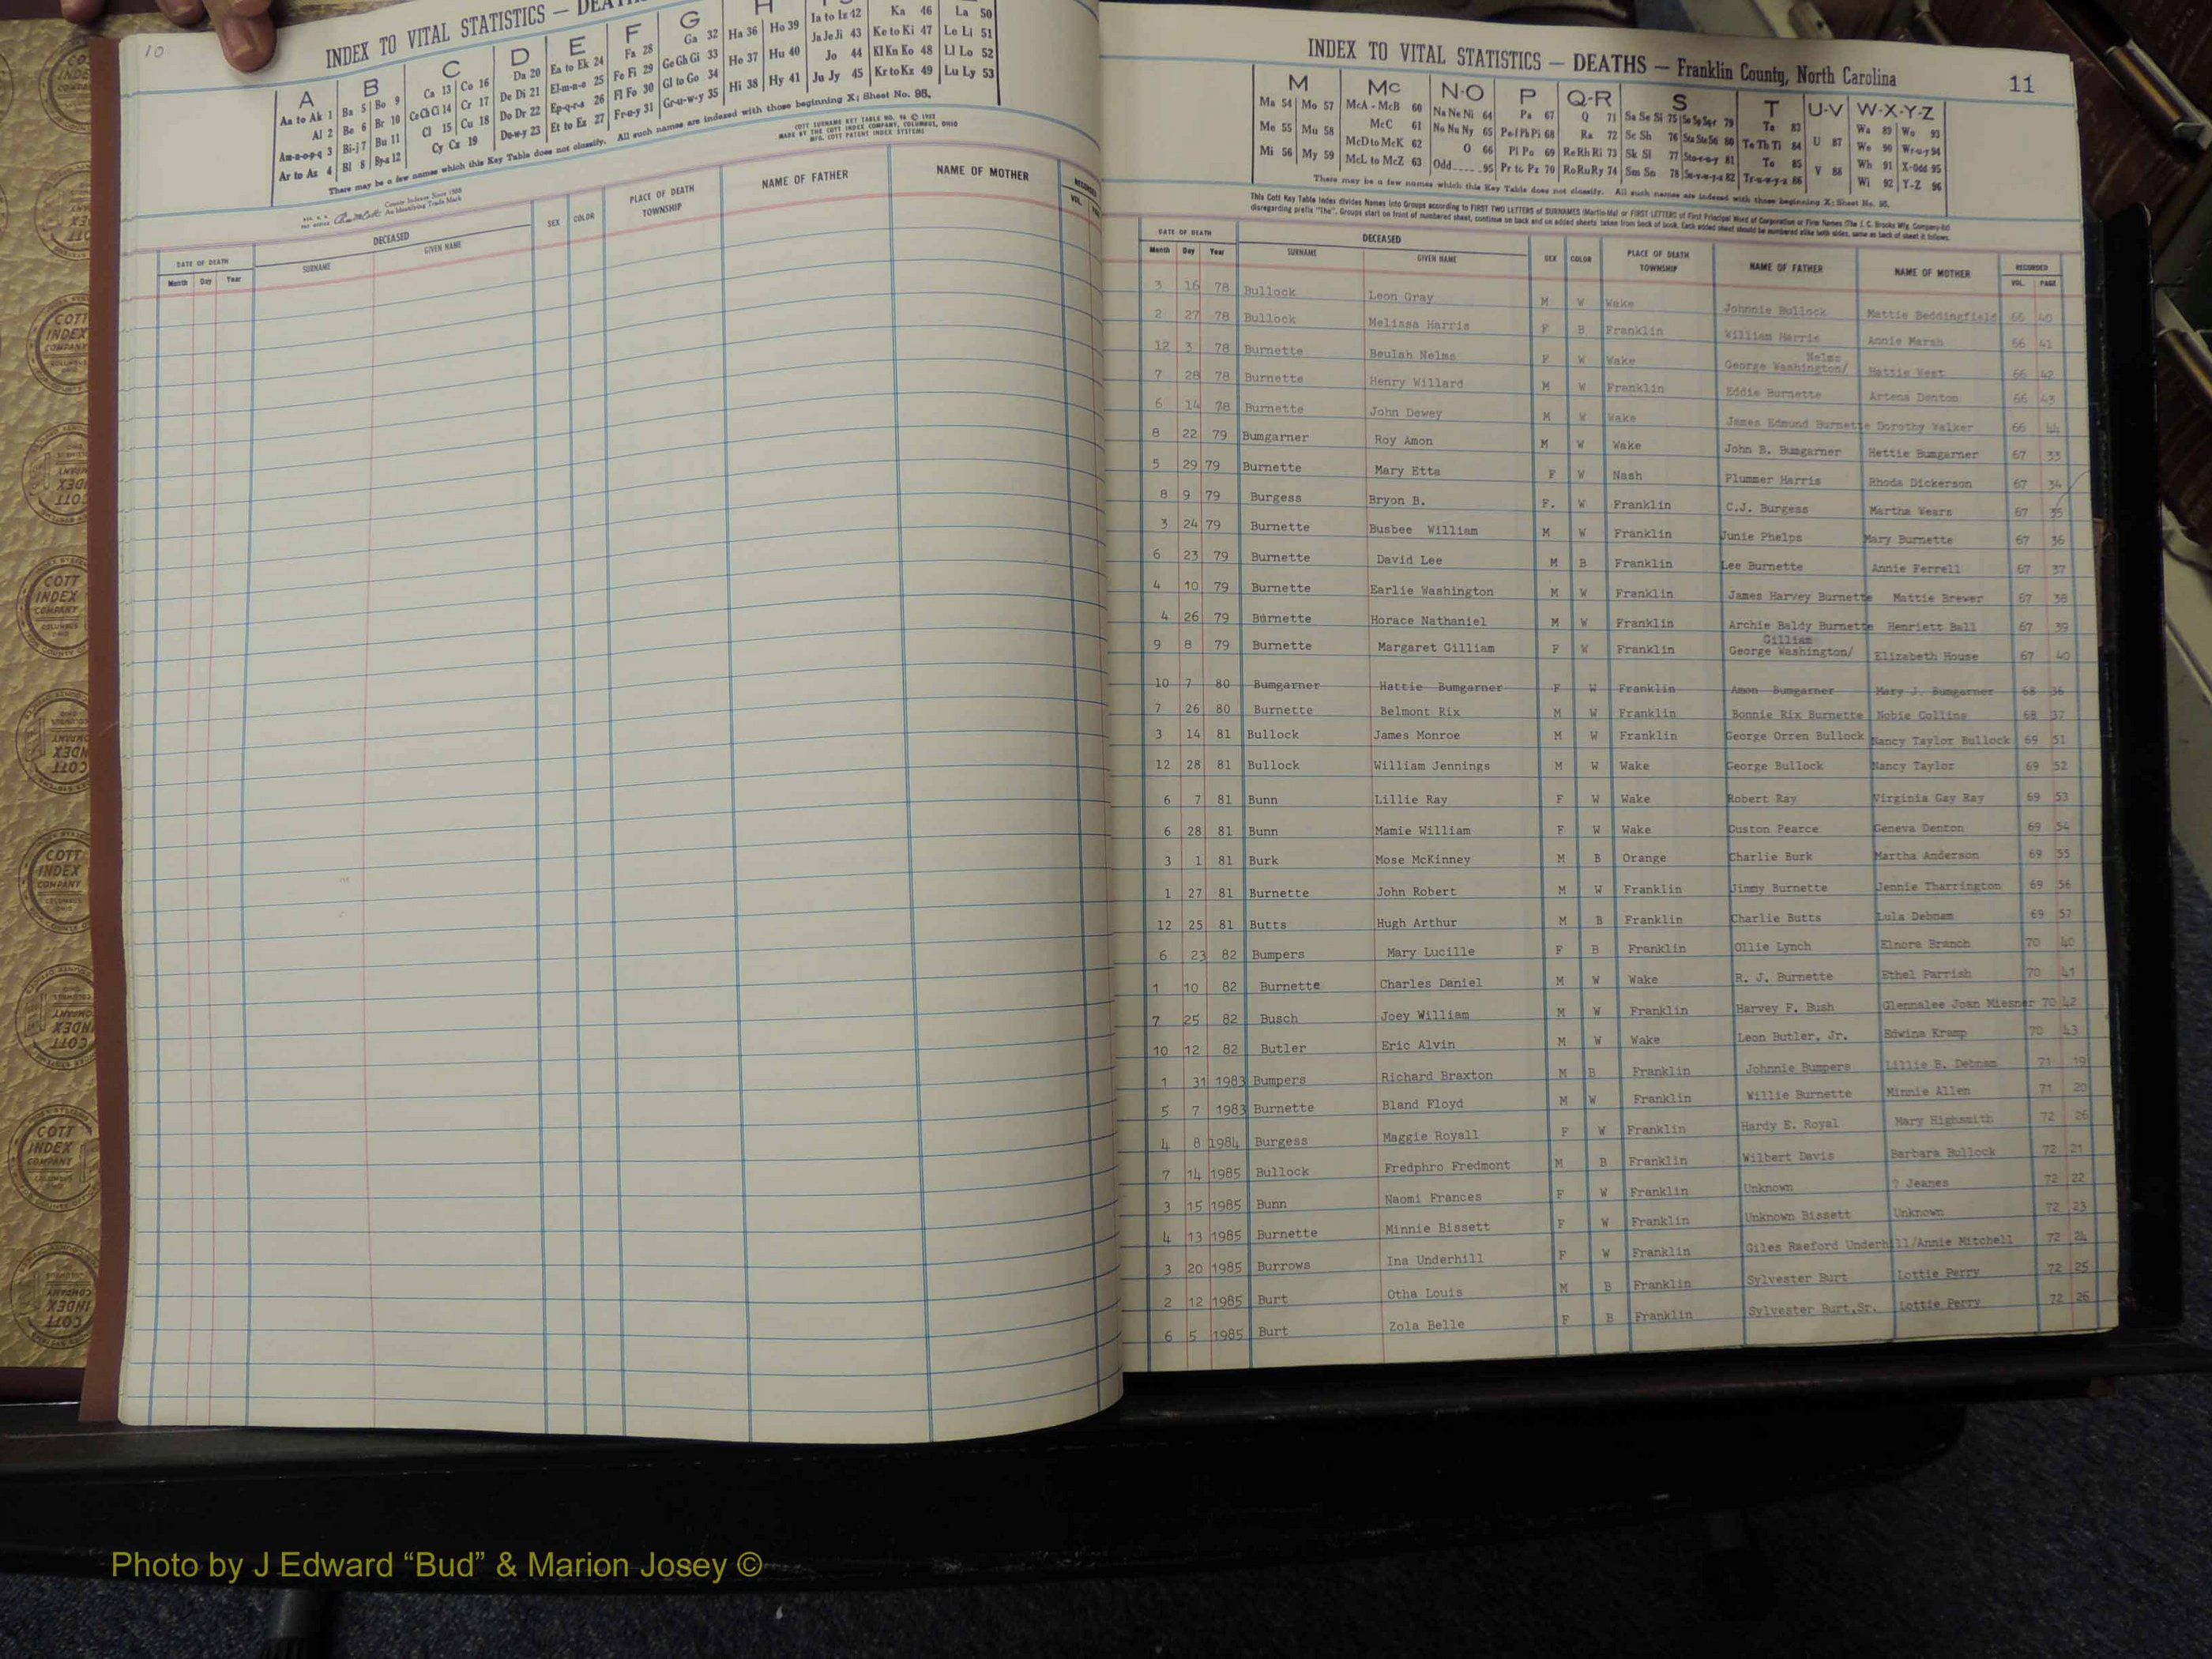 10
INDEX TO VITAL STATISTICS — DEATH
A B C D E F G H
Aa to Ak 1 Ba 5 Bo 9 Ca 13 Co 16 Da 20 Ea to Ek 24 Fa 28 Ga 32 Ha 36 Ho 39 Ia to Iz 42 Ka 46 La 50
Al 2 Be 6 Br 10 Ce Ch Ci 14 Cr 17 De Di 21 El-m-n-o 25 Fe Fi 29 Ge Gh Gi 33 He 37 Hu 40 Ja Je Ji 43 Ke to Ki 47 Le Li 51
Am-n-o-p-q 3 Bi-j 7 Bu 11 Cl 15 Cu 18 Do Dr 22 Ep-q-r-s 26 Fl Fo 30 Gl to Go 34 Hi 38 Hy 41 Jo 44 Kl Kn Ko 48 Ll Lo 52
Ar to Az 4 Bl 8 By-z 12 Cy Cz 19 Du-w-y 23 Et to Ez 27 Fr-u-y 31 Gr-u-w-y 35 Ju Jy 45 Kr to Kz 49 Lu Ly 53
There may be a few names which this Key Table does not classify. All such names are indexed with those beginning X; Sheet No. 96.
COTT SURNAME KEY TABLE NO. 96 © 1922
MADE BY THE COTT INDEX COMPANY, COLUMBUS, OHIO
MFG. COTT PATENT INDEX SYSTEMS
County Indexes Since 1888
An Identifying Trade Mark
DATE OF DEATH DECEASED SEX COLOR PLACE OF DEATH TOWNSHIP NAME OF FATHER NAME OF MOTHER RECORDED
Month Day Year SURNAME GIVEN NAME VOL.
INDEX TO VITAL STATISTICS — DEATHS — Franklin County, North Carolina 11
M Mc N-O P Q-R S T U-V W-X-Y-Z
Ma 54 Mo 57 McA - McB 60 Na Ne Ni 64 Pa 67 Q 71 Sa Se Si 75 Sp Sq Sr 79 Ta 83 Wa 89 Wo 93
Me 55 Mu 58 McC 61 No Nu Ny 65 Pe Ph Pi 68 Ra 72 Sc Sh 76 Sta Ste 80 Te Th Ti 84 U 87 We 90 Wr-u-y 94
Mi 56 My 59 McD to McK 62 O 66 Pl Po 69 Re Rh Ri 73 Sk Sl 77 Sto-r-u-y 81 To 85 V 88 Wh 91 X-Odd 95
McL to McZ 63 Odd 95 Pr to Pz 70 Ro Ru Ry 74 Sm Sn 78 Su-v-w-y-z 82 Tr-u-w-y-z 86 Wi 92 Y-Z 96
There may be a few names which this Key Table does not classify. All such names are indexed with those beginning X; Sheet No. 96.
This Cott Key Table Index divides Names into Groups according to FIRST TWO LETTERS of SURNAMES (Martin-Ma) or FIRST LETTERS of First Principal Word of Corporation or Firm Names (The J. C. Brooks Mfg. Company-Br)
disregarding prefix "The". Groups start on front of numbered sheet, continue on back and on added sheets taken from back of book. Each added sheet should be numbered alike both sides, same as back of sheet it follows.
DATE OF DEATH DECEASED SEX COLOR PLACE OF DEATH TOWNSHIP NAME OF FATHER NAME OF MOTHER RECORDED
Month Day Year SURNAME GIVEN NAME VOL. PAGE
3 16 78 Bullock Leon Gray M W Wake Johnnie Bullock Mattie Beddingfield 66 40
2 27 78 Bullock Melissa Harris F B Franklin William Harris Annie Marsh 66 41
12 3 78 Burnette Beulah Nelms F W Wake George Washington/ Nelms Hattie West 66 42
7 28 78 Burnette Henry Willard M W Franklin Eddie Burnette Artena Denton 66 43
6 14 78 Burnette John Dewey M W Wake James Edmund Burnette Dorothy Walker 66 44
8 22 79 Bumgarner Roy Amon M W Wake John B. Bumgarner Hettie Bumgarner 67 33
5 29 79 Burnette Mary Etta F W Nash Plummer Harris Rhoda Dickerson 67 34
8 9 79 Burgess Bryon B. F. W Franklin C.J. Burgess Martha Wears 67 35
3 24 79 Burnette Busbee William M W Franklin Junie Phelps Mary Burnette 67 36
6 23 79 Burnette David Lee M B Franklin Lee Burnette Annie Ferrell 67 37
4 10 79 Burnette Earlie Washington M W Franklin James Harvey Burnette Mattie Brewer 67 38
4 26 79 Burnette Horace Nathaniel M W Franklin Archie Baldy Burnette Henriett Ball 67 39
9 8 79 Burnette Margaret Gilliam F W Franklin George Washington/ Gilliam Elizabeth House 67 40
10 7 80 Bumgarner Hattie Bumgarner F W Franklin Amon Bumgarner Mary J. Bumgarner 68 36
7 26 80 Burnette Belmont Rix M W Franklin Bonnie Rix Burnette Nobie Collins 68 37
3 14 81 Bullock James Monroe M W Franklin George Orren Bullock Nancy Taylor Bullock 69 51
12 28 81 Bullock William Jennings M W Wake George Bullock Nancy Taylor 69 52
6 7 81 Bunn Lillie Ray F W Wake Robert Ray Virginia Gay Ray 69 53
6 28 81 Bunn Mamie William F W Wake Guston Pearce Geneva Denton 69 54
3 1 81 Burk Mose McKinney M B Orange Charlie Burk Martha Anderson 69 55
1 27 81 Burnette John Robert M W Franklin Jimmy Burnette Jennie Tharrington 69 56
12 25 81 Butts Hugh Arthur M B Franklin Charlie Butts Lula Debnam 69 57
6 23 82 Bumpers Mary Lucille F B Franklin Ollie Lynch Elnora Branch 70 40
1 10 82 Burnette Charles Daniel M W Wake R. J. Burnette Ethel Parrish 70 41
7 25 82 Busch Joey William M W Franklin Harvey F. Bush Glennalee Joan Miesner 70 42
10 12 82 Butler Eric Alvin M W Wake Leon Butler, Jr. Edwina Kramp 70 43
1 31 1983 Bumpers Richard Braxton M B Franklin Johnnie Bumpers Lillie B. Debnam 71 19
5 7 1983 Burnette Bland Floyd M W Franklin Willie Burnette Minnie Allen 71 20
4 8 1984 Burgess Maggie Royall F W Franklin Hardy E. Royal Mary Highsmith 72 26
7 14 1985 Bullock Fredphro Fredmont M B Franklin Wilbert Davis Barbara Bullock 72 21
3 15 1985 Bunn Naomi Frances F W Franklin Unknown ? Jeanes 72 22
4 13 1985 Burnette Minnie Bissett F W Franklin Unknown Bissett Unknown 72 23
3 20 1985 Burrows Ina Underhill F W Franklin Giles Raeford Underhill/Annie Mitchell 72 24
2 12 1985 Burt Otha Louis M B Franklin Sylvester Burt Lottie Perry 72 25
6 5 1985 Burt Zola Belle F B Franklin Sylvester Burt,Sr. Lottie Perry 72 26
COTT INDEX COMPANY COLUMBUS OHIO
Photo by J Edward “Bud” & Marion Josey ©